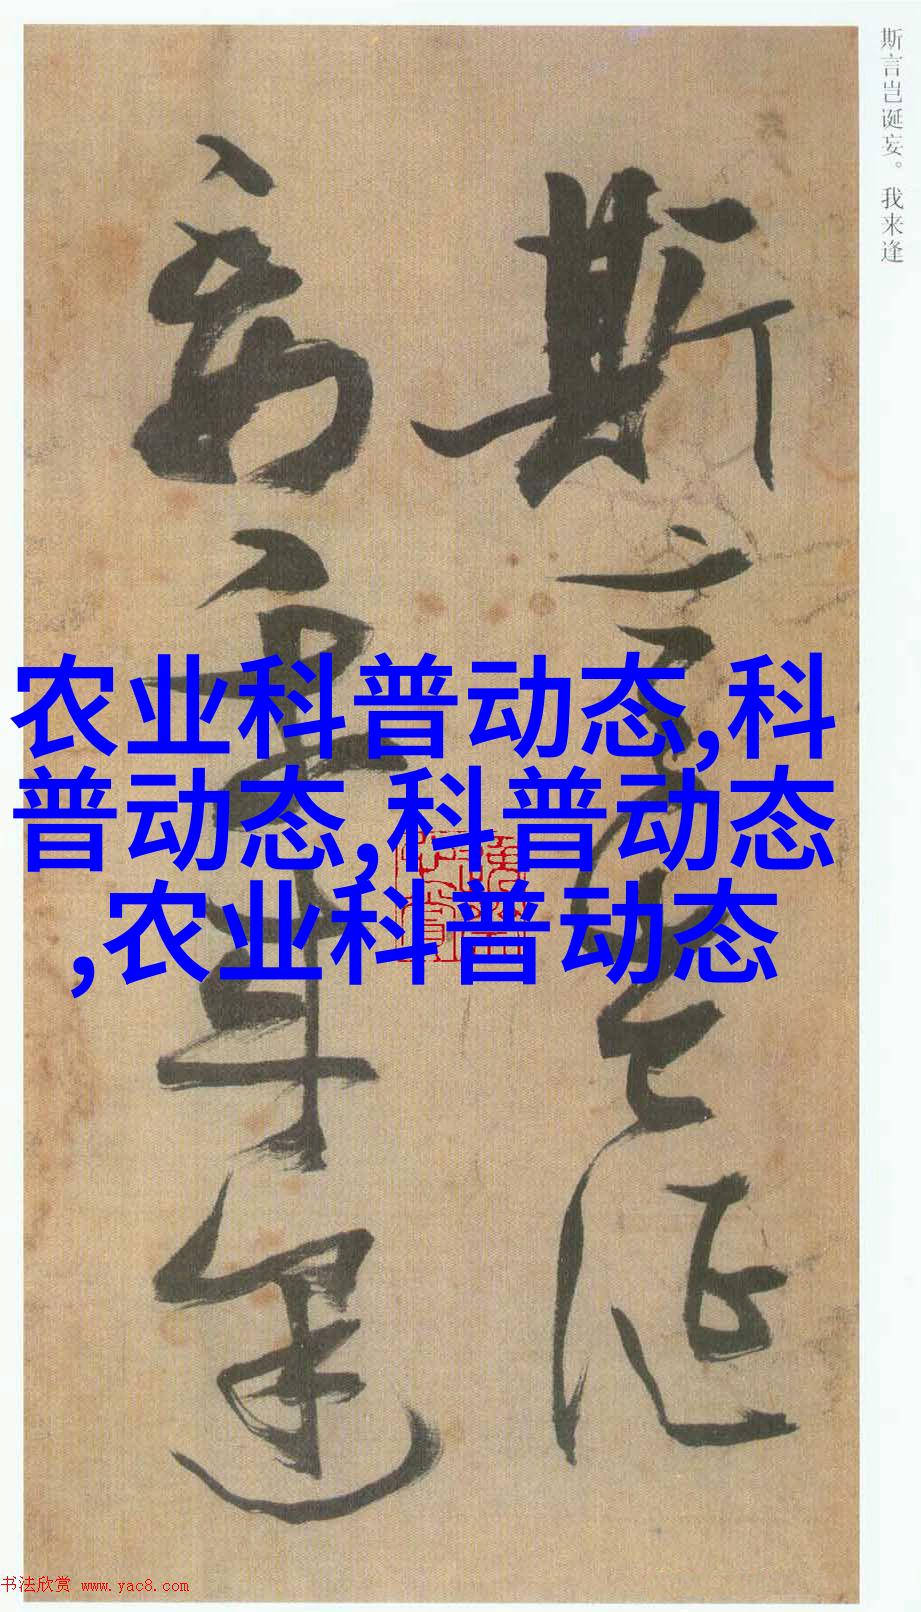 斯言岂诞妄。我来逢
斯言岂诞
妄我来逢
农业科普动态,科
普动态,科普动态
,农业科普动态
书法欣赏 www.yac8.com